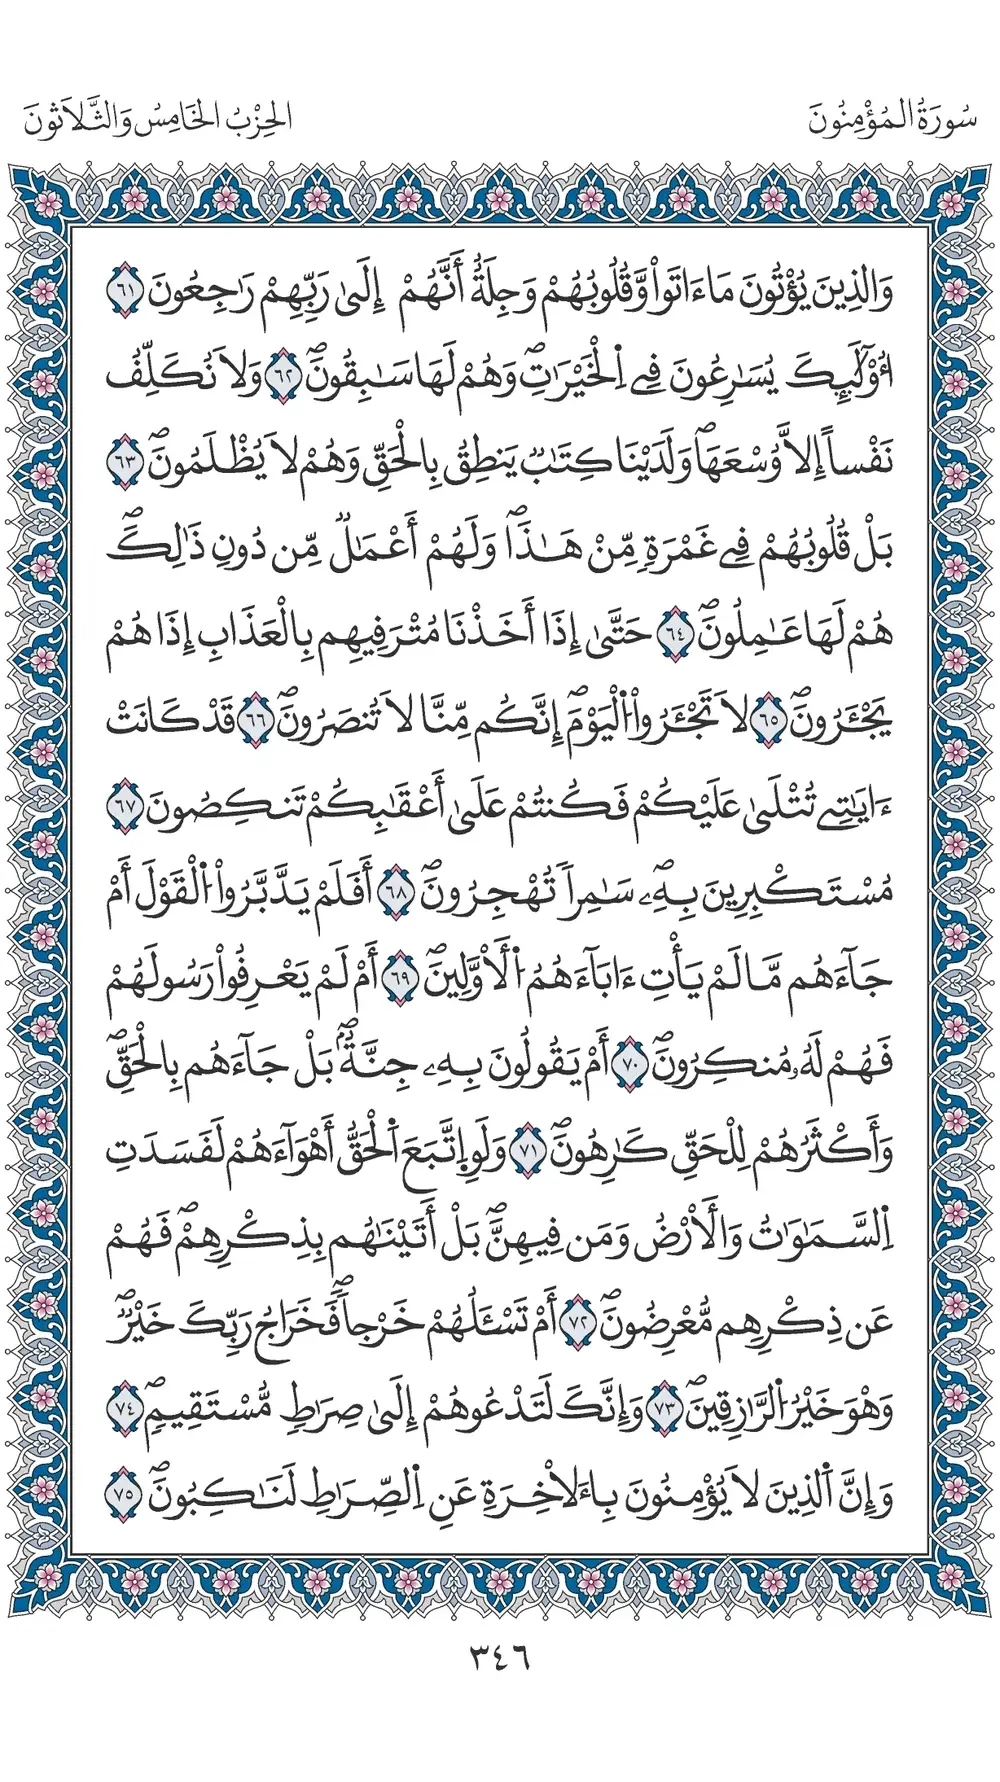 سُورَةُ الْمُؤْمِنُونَ
الْحِزْبُ الْخَامِسُ وَالثَّلَاثُونَ
وَالذِينَ يُؤْتُونَ مَا ءَاتَواْ وَّقُلُوبُهُمْ وَجِلَةٌ أَنَّهُمْ إِلَىٰ رَبِّهِمْ رَٰجِعُونَ ٦١
أُوْلَٰٓئِكَ يُسَٰرِعُونَ فِے اِ۬لْخَيْرَٰتِۖ وَهُمْ لَهَا سَٰبِقُونَۖ ٦٢ وَلَا نُكَلِّفُ
نَفْساً إِلَّا وُسْعَهَاۖ وَلَدَيْنَا كِتَٰبٞ يَنطِقُ بِالْحَقِّ وَهُمْ لَا يُظْلَمُونَۖ ٦٣
بَلْ قُلُوبُهُمْ فِے غَمْرَةٖ مِّنْ هَٰذَاۖ وَلَهُمْ أَعْمَٰلٞ مِّن دُونِ ذَٰلِكَۖ
هُمْ لَهَا عَٰمِلُونَۖ ٦٤ حَتَّىٰ إِذَا أَخَذْنَا مُتْرَفِيهِم بِالْعَذَابِ إِذَا هُمْ
يَجْـَٔرُونَۖ ٦٥ لَا تَجْـَٔرُواْ اُ۬لْيَوْمَۖ إِنَّكُم مِّنَّا لَا تُنصَرُونَۖ ٦٦ قَدْ كَانَتْ
ءَايَٰتِے تُتْلَىٰ عَلَيْكُمْ فَكُنتُمْ عَلَىٰ أَعْقَٰبِكُمْ تَنكِصُونَ ٦٧
مُسْتَكْبِرِينَ بِهِۦۖ سَٰمِراً تُهْجِرُونَۖ ٦٨ أَفَلَمْ يَدَّبَّرُواْ اُ۬لْقَوْلَ أَمْ
جَآءَهُم مَّا لَمْ يَأْتِ ءَابَآءَهُمُ اُ۬لَاوَّلِينَۖ ٦٩ أَمْ لَمْ يَعْرِفُواْ رَسُولَهُمْ
فَهُمْ لَهُۥ مُنكِرُونَۖ ٧٠ أَمْ يَقُولُونَ بِهِۦ جِنَّةُۢۖ بَلْ جَآءَهُم بِالْحَقِّۖ
وَأَكْثَرُهُمْ لِلْحَقِّ كَٰرِهُونَۖ ٧١ وَلَوِ اِ۪تَّبَعَ اَ۬لْحَقُّ أَهْوَآءَهُمْ لَفَسَدَتِ
اِ۬لسَّمَٰوَٰتُ وَالْأَرْضُ وَمَن فِيهِنَّۖ بَلْ أَتَيْنَٰهُم بِذِكْرِهِمْۖ فَهُمْ
عَن ذِكْرِهِم مُّعْرِضُونَۖ ٧٢ أَمْ تَسْـَٔلُهُمْ خَرْجاًۖ فَخَرَاجُ رَبِّكَ خَيْرٞۖ
وَهُوَ خَيْرُ اُ۬لرَّٰزِقِينَۖ ٧٣ وَإِنَّكَ لَتَدْعُوهُمْ إِلَىٰ صِرَٰطٖ مُّسْتَقِيمٖۖ ٧٤
وَإِنَّ اَ۬لذِينَ لَا يُؤْمِنُونَ بِالْأٓخِرَةِ عَنِ اِ۬لصِّرَٰطِ لَنَٰكِبُونَۖ ٧٥
٣٤٦